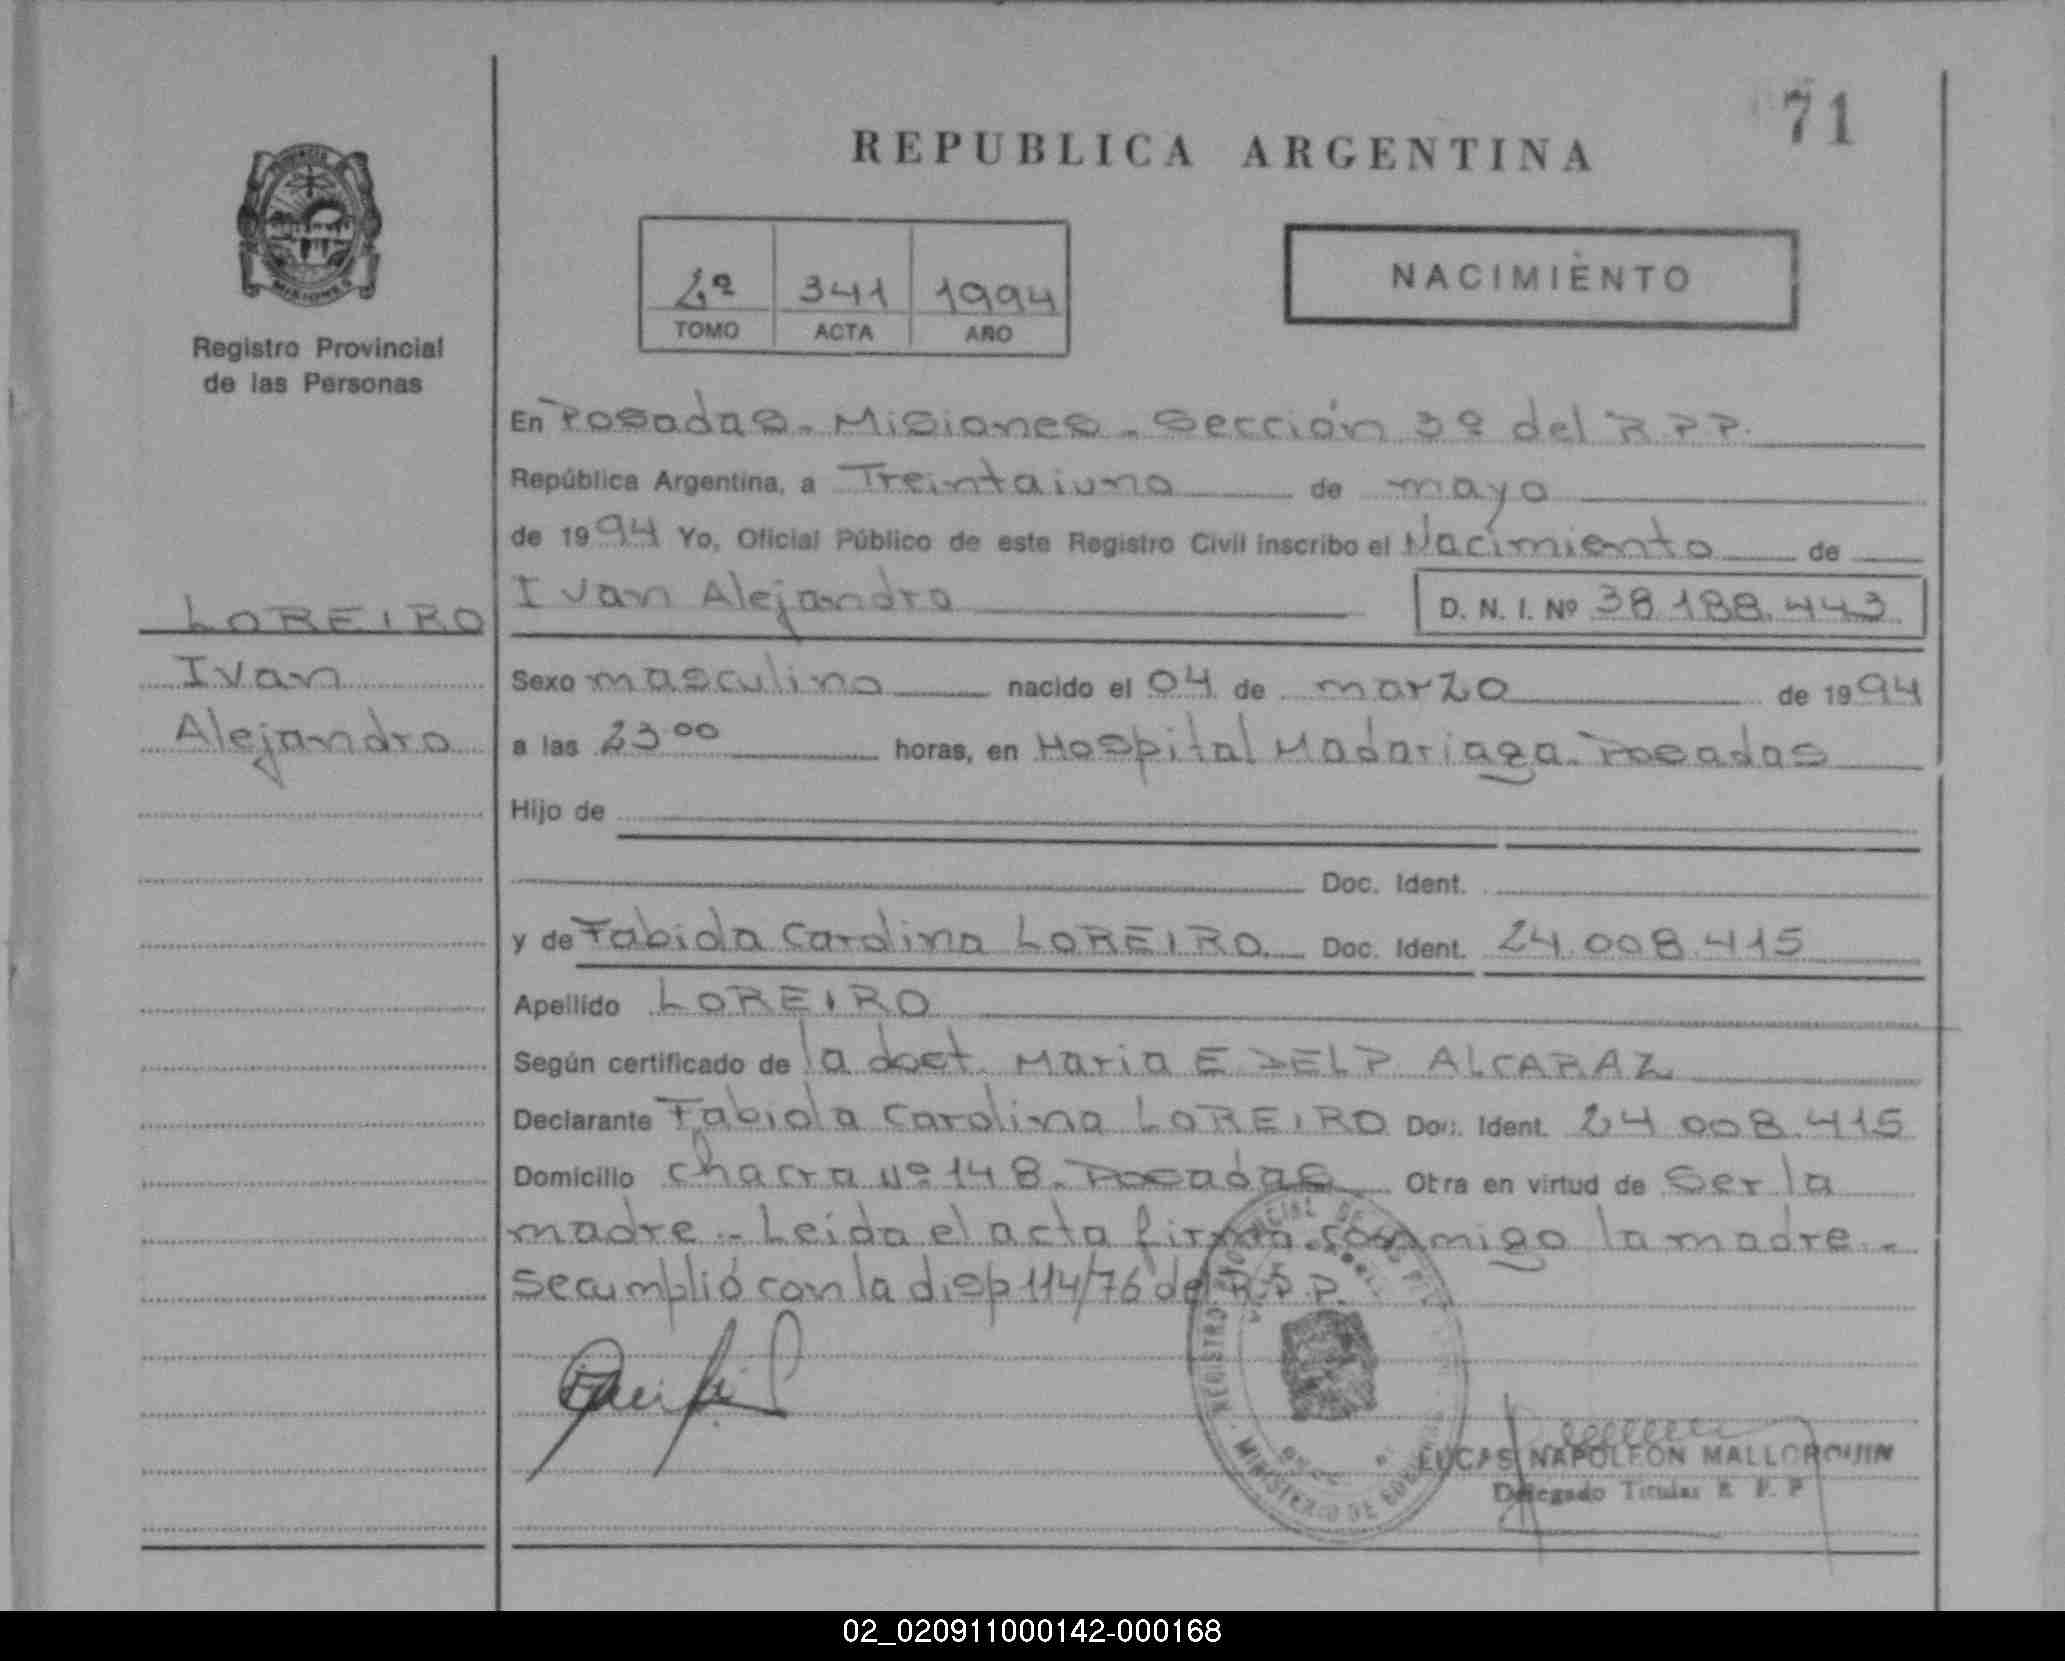 71
REPUBLICA ARGENTINA
2º 341 1994
TOMO ACTA AÑO
NACIMIENTO
Registro Provincial
de las Personas
En Posadas - Misiones - Sección 3º del R.P.P.
República Argentina, a Treintaiuno de mayo
de 1994 Yo, Oficial Público de este Registro Civil inscribo el Nacimiento de
Ivan Alejandro D. N. I. Nº 38.188.443
LOREIRO
Ivan
Alejandro
Sexo masculino nacido el 04 de marzo de 1994
a las 23⁰⁰ horas, en Hospital Madariaga - Posadas
Hijo de
Doc. Ident.
y de Fabiola Carolina LOREIRO Doc. Ident. 24.008.415
Apellido LOREIRO
Según certificado de la doct. Maria E DEL P. ALCARAZ
Declarante Fabiola Carolina LOREIRO Doc. Ident. 24.008.415
Domicilio chacra Nº 148 - Posadas Otra en virtud de Ser la
madre - Leida el acta firma conmigo la madre -
Se cumplió con la disp 114/76 del R.P.P.
REGISTRO PROVINCIAL DE LAS
MINISTERIO DE GOBIERNO
LUCAS NAPOLEON MALLORQUIN
Delegado Titular R. P. P
02_020911000142-000168